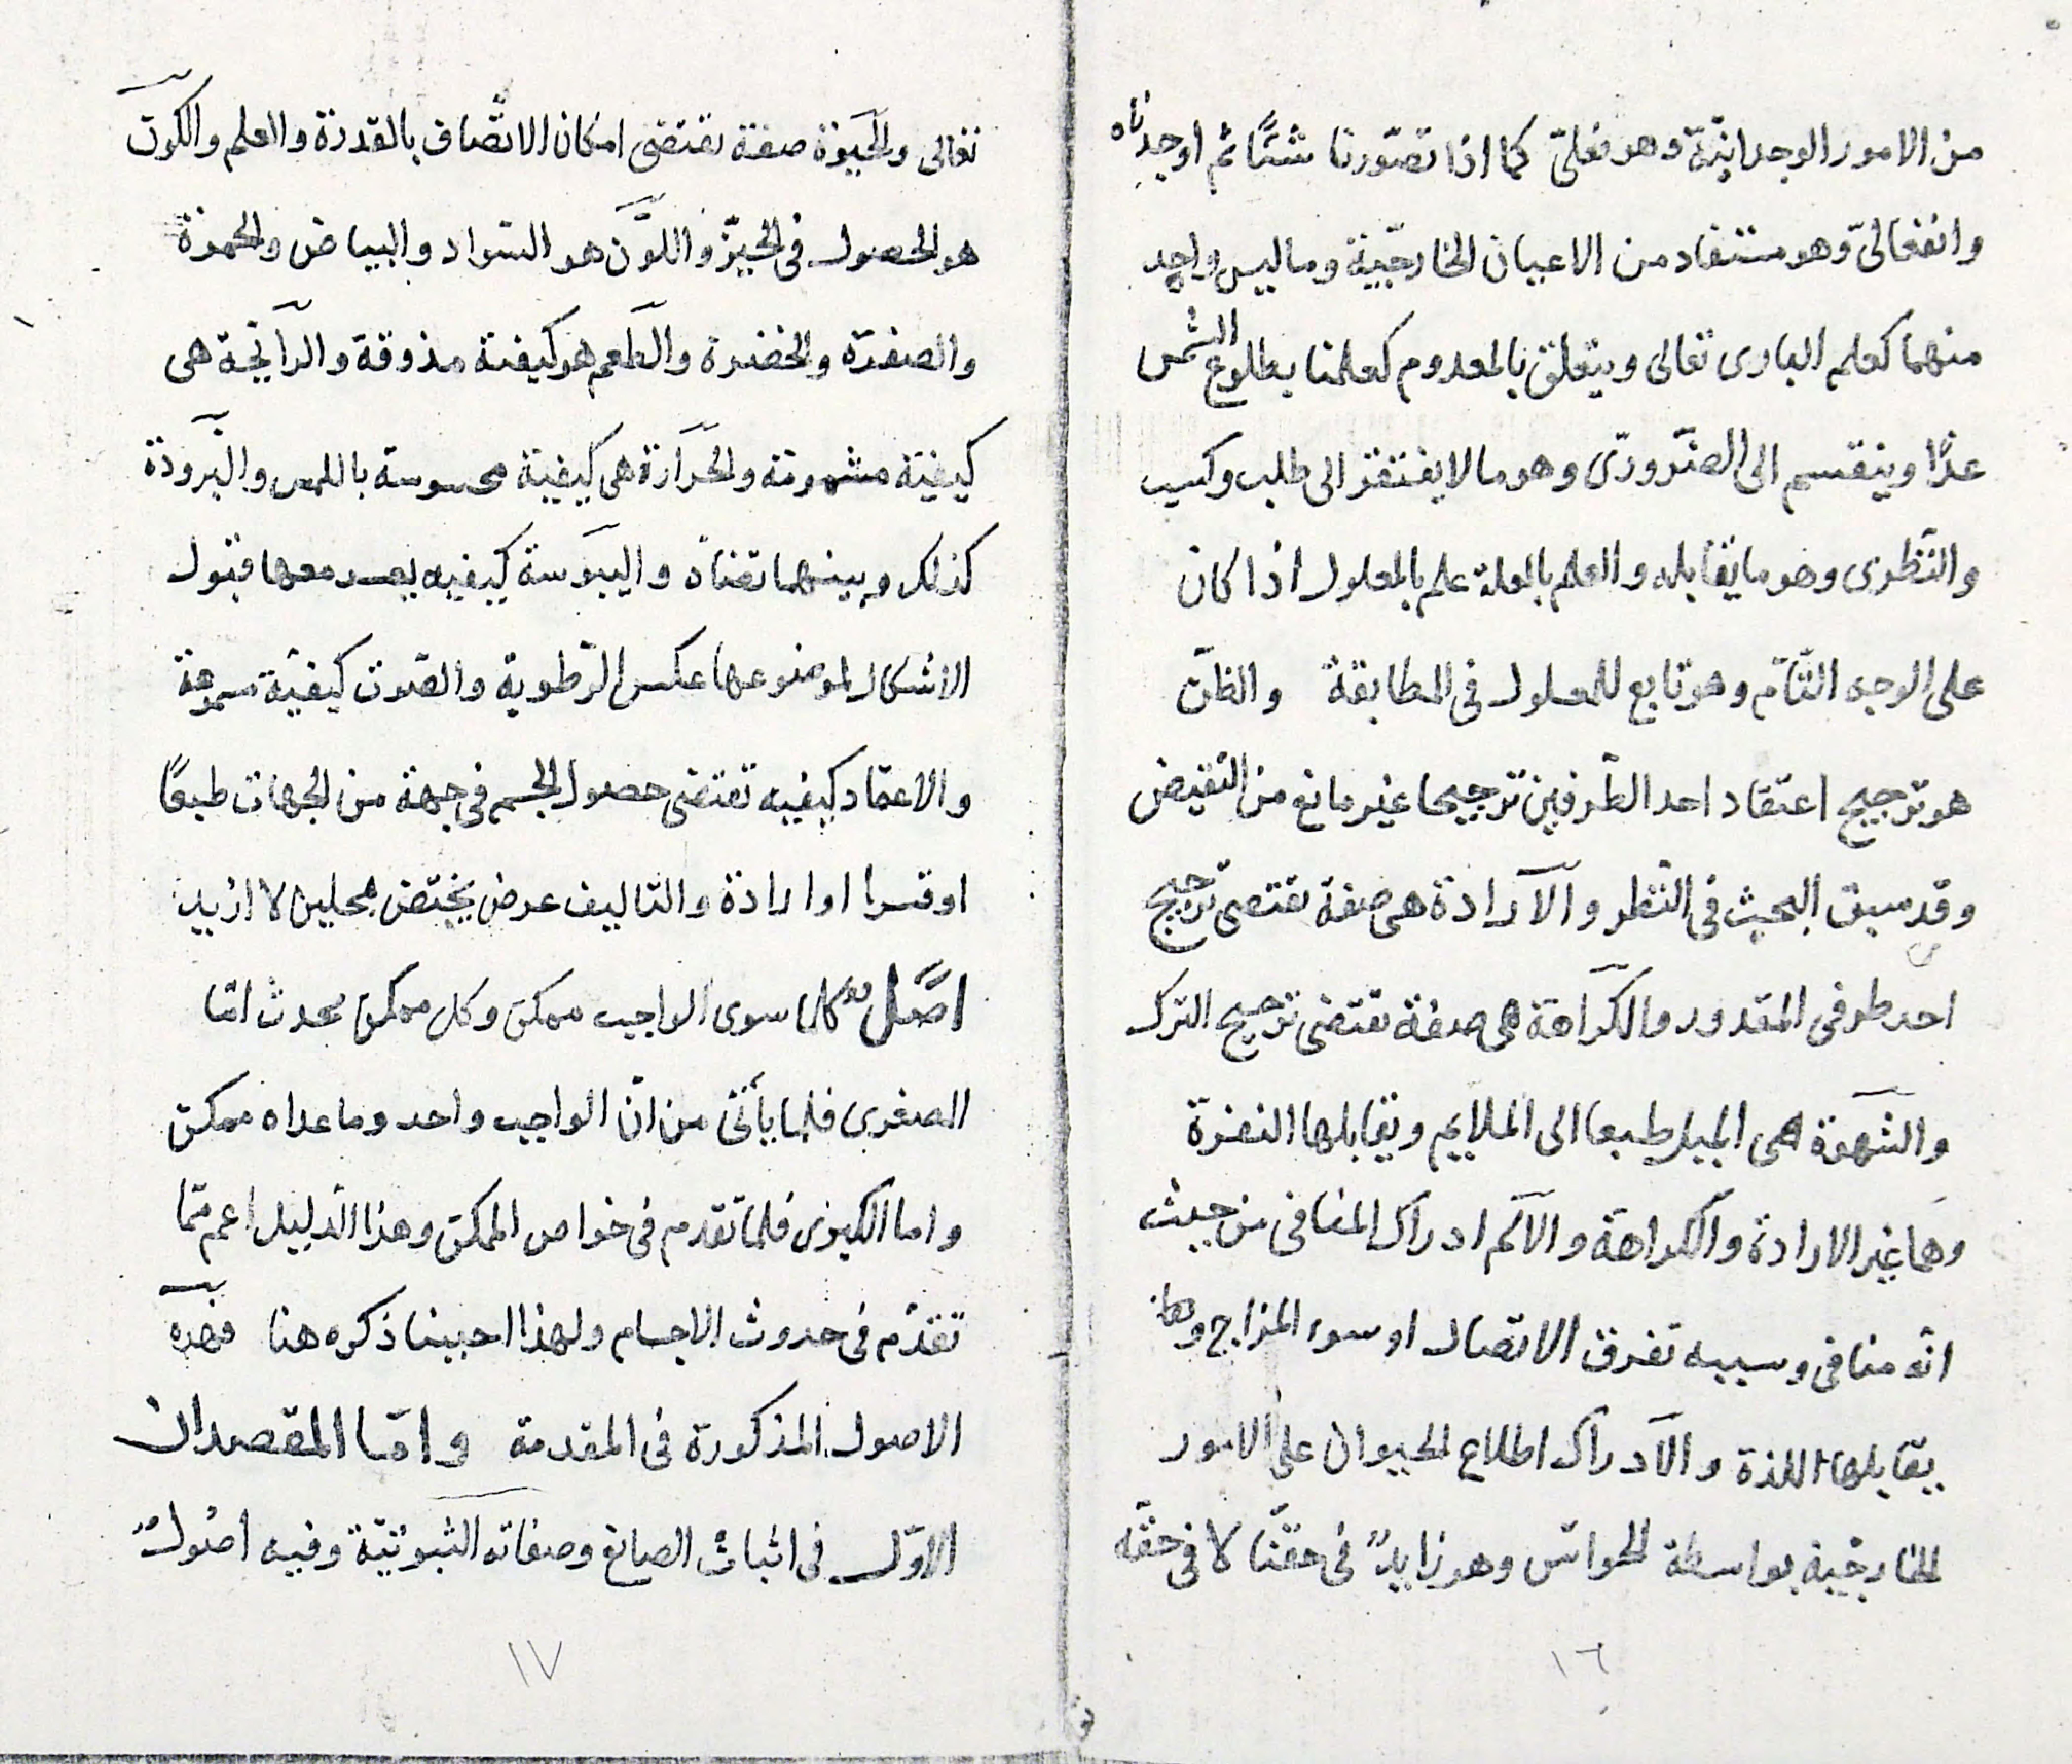 من الامور الوجدانيّة وهو فعليّ كما اذا تصوّرنا شئًا ثم اوجدناه
وانفعاليّ وهو مستفاد من الاعيان الخارجيّة وما ليس واحد
منهما كعلم البارى تعالى ويتعلق بالمعدوم كعلمنا بطلوع الشمس
غدًا وينقسم الى الضّرورىّ وهو ما لا يفتقر الى طلب وكسب
والنّظرى وهو ما يقابله والعلم بالعلة علم بالمعلول اذا كان
على الوجه التّامّ وهو تابع للمعلول فى المطابقة والظنّ
هو ترجيح اعتقاد احد الطّرفين ترجيحا غير مانع من النقيض
وقد سبق البحث فى النّظر والآرادة هى صفة تقتضى ترجيح
احد طرفى المقدور والكرآهة هى صفة تقتضى ترجيح الترك
والشّهوة هى الميل طبعا الى الملايم ويقابلها النفرة
وهما غير الارادة والكراهة والآلم ادراك المنافى من حيث
انّه منافى وسببه تفرق الاتصال او سوء المزاج
يقابلها اللذة والآدراك اطلاع الحيوان على الامور
الخارجيّة بواسطة الحواسّ وهو زايدٌ فى حقنّا لا فى حقّه
١٦
تعالى والحيوة صفة تقتضى امكان الاتّصاف بالقدرة والعلم والكون
هو الحصول فى الحيّز واللّون هو السّواد والبياض والحمرة
والصفرة والخضرة والطّعم هو كيفية مذوقة والرآئحة هى
كيفيّة مشمومة والحرآرة هى كيفيّة محسوسة باللمس والبرودة
كذلك وبينهما تضادّ واليبوسة كيفيه يعسر معها قبول
الاشكال لموضوعها عكس الرّطوبة والصّوت كيفيّة مسموعة
والاعتماد كيفيه تقتضى حصول الجسم فى جهة من الجهات طبعًا
او قسرا او ارادة والتاليف عرض يختصّ بمحلين لا ازيد
اصّل كلما سوى الواجب ممكن وكل ممكن محدث امّا
الصغرى فلما يأتى من انّ الواجب واحد وما عداه ممكن
واما الكبرى فلما تقدم فى خواص الممكن وهذا الدّليل اعم ممّا
تقدّم فى حدوث الاجسام ولهذا احببنا ذكره هنا فهذه
الاصول المذكورة فى المقدمة وامّا المقصدان
الاوّل فى اثبات الصانع وصفاته الثبوتيّة وفيه اصولٌ
١٧